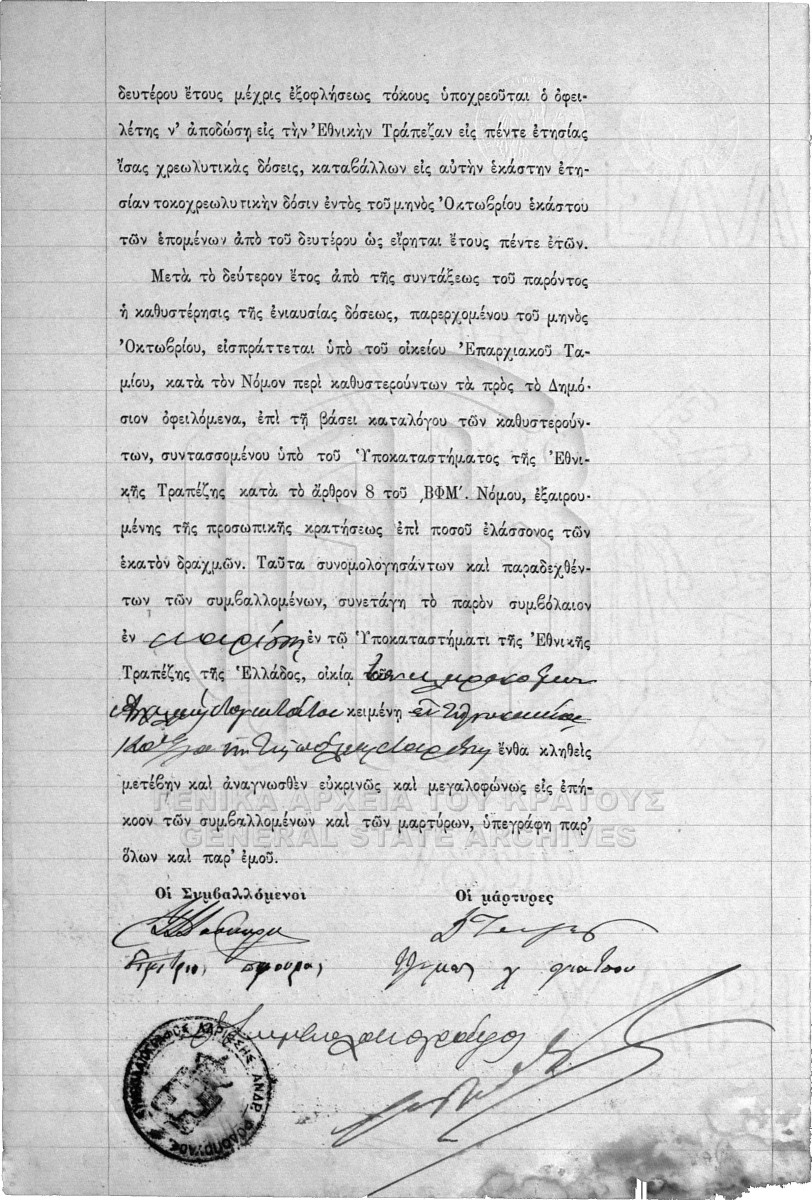 δευτέρου ἔτους μέχρις ἐξοφλήσεως τόκους ὑποχρεοῦται ὁ ὀφει-
λέτης ν' ἀποδώσῃ εἰς τὴν Ἐθνικὴν Τράπεζαν εἰς πέντε ἐτησίας
ἴσας χρεωλυτικὰς δόσεις, καταβάλλων εἰς αὐτὴν ἑκάστην ἐτη-
σίαν τοκοχρεωλυτικὴν δόσιν ἐντὸς τοῦ μηνὸς Ὀκτωβρίου ἑκάστου
τῶν ἑπομένων ἀπὸ τοῦ δευτέρου ὡς εἴρηται ἔτους πέντε ἐτῶν.
Μετὰ τὸ δεύτερον ἔτος ἀπὸ τῆς συντάξεως τοῦ παρόντος
ἡ καθυστέρησις τῆς ἐνιαυσίας δόσεως, παρερχομένου τοῦ μηνὸς
Ὀκτωβρίου, εἰσπράττεται ὑπὸ τοῦ οἰκείου Ἐπαρχιακοῦ Τα-
μίου, κατὰ τὸν Νόμον περὶ καθυστερούντων τὰ πρὸς τὸ Δημό-
σιον ὀφειλόμενα, ἐπὶ τῇ βάσει καταλόγου τῶν καθυστερούν-
των, συντασσομένου ὑπὸ τοῦ Ὑποκαταστήματος τῆς Ἐθνι-
κῆς Τραπέζης κατὰ τὸ ἄρθρον 8 τοῦ ͵ΒΦΜʹ. Νόμου, ἐξαιρου-
μένης τῆς προσωπικῆς κρατήσεως ἐπὶ ποσοῦ ἐλάσσονος τῶν
ἑκατὸν δραχμῶν. Ταῦτα συνομολογησάντων καὶ παραδεχθέν-
των τῶν συμβαλλομένων, συνετάγη τὸ παρὸν συμβόλαιον
ἐν Λαρίσῃ ἐν τῷ Ὑποκαταστήματι τῆς Ἐθνικῆς
Τραπέζης τῆς Ἑλλάδος, οἰκίᾳ τῶν κληρονόμων
κειμένῃ
ἔνθα κληθεὶς
μετέβην καὶ ἀναγνωσθὲν εὐκρινῶς καὶ μεγαλοφώνως εἰς ἐπή-
κοον τῶν συμβαλλομένων καὶ τῶν μαρτύρων, ὑπεγράφη παρ'
ὅλων καὶ παρ' ἐμοῦ.
Οἱ Συμβαλλόμενοι Οἱ μάρτυρες
Δημήτριος
Ὁ Συμβολαιογράφος
ΣΥΜΒΟΛΑΙΟΓΡΑΦΟΣ ΛΑΡΙΣΣΗΣ ΑΝΔΡ. ΡΟΔΟΠΟΥΛΟΣ
ΓΕΝΙΚΑ ΑΡΧΕΙΑ ΤΟΥ ΚΡΑΤΟΥΣ
GENERAL STATE ARCHIVES